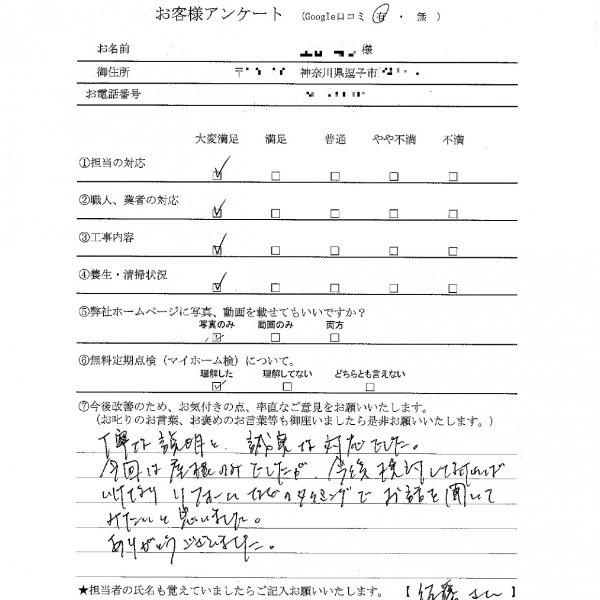 お客様アンケート （Google口コミ 有 ・ 無 ）
お名前 様
御住所 〒 神奈川県逗子市
お電話番号
大変満足 満足 普通 やや不満 不満
①担当の対応
②職人、業者の対応
③工事内容
④養生・清掃状況
⑤弊社ホームページに写真、動画を載せてもいいですか？
写真のみ 動画のみ 両方
⑥無料定期点検（マイホーム検）について。
理解した 理解してない どちらとも言えない
⑦今後改善のため、お気付きの点、率直なご意見をお願いいたします。
（お叱りのお言葉、お褒めのお言葉等も御座いましたら是非お願いします。）
丁寧な説明と、誠実な対応でした。
今回は屋根のみでしたが、今後検討しなければ
いけない リフォームなどのタイミングで お話を聞いて
みたいと思いました。
ありがとうございました。
★担当者の氏名も覚えていましたらご記入お願いいたします。 【 佐藤さん 】